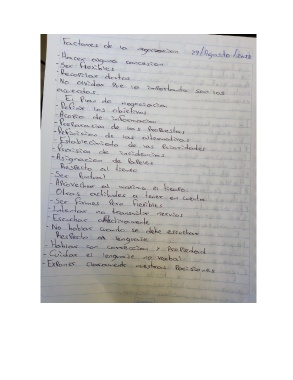 Factores de la negociacion 29/Agosto/2018
- Hacer alguna concesion
- Ser flexibles
- Recopilar datos
- No olvidar que lo importante son los
acuerdos
El Plan de negociacion
- Definir los objetivos
- Acopio de informacion
- Preparacion de las Propuestas
- Definicion de las alternativas
- Establecimiento de las Prioridades
- Prevision de incidencias
- Asignacion de Papeles
Respecto al tiempo
- Ser Puntual
- Aprovechar al maximo el tiempo
Otras actitudes a tener en cuenta
- Ser firmes Pero flexibles
- Intentar no transmitir nervios
- Escuchar
- No hablar cuando se debe escuchar
Respecto al lenguaje
- Hablar con correccion y Propiedad
- Cuidar el lenguaje no verbal
- Exponer claramente nuestras Posiciones